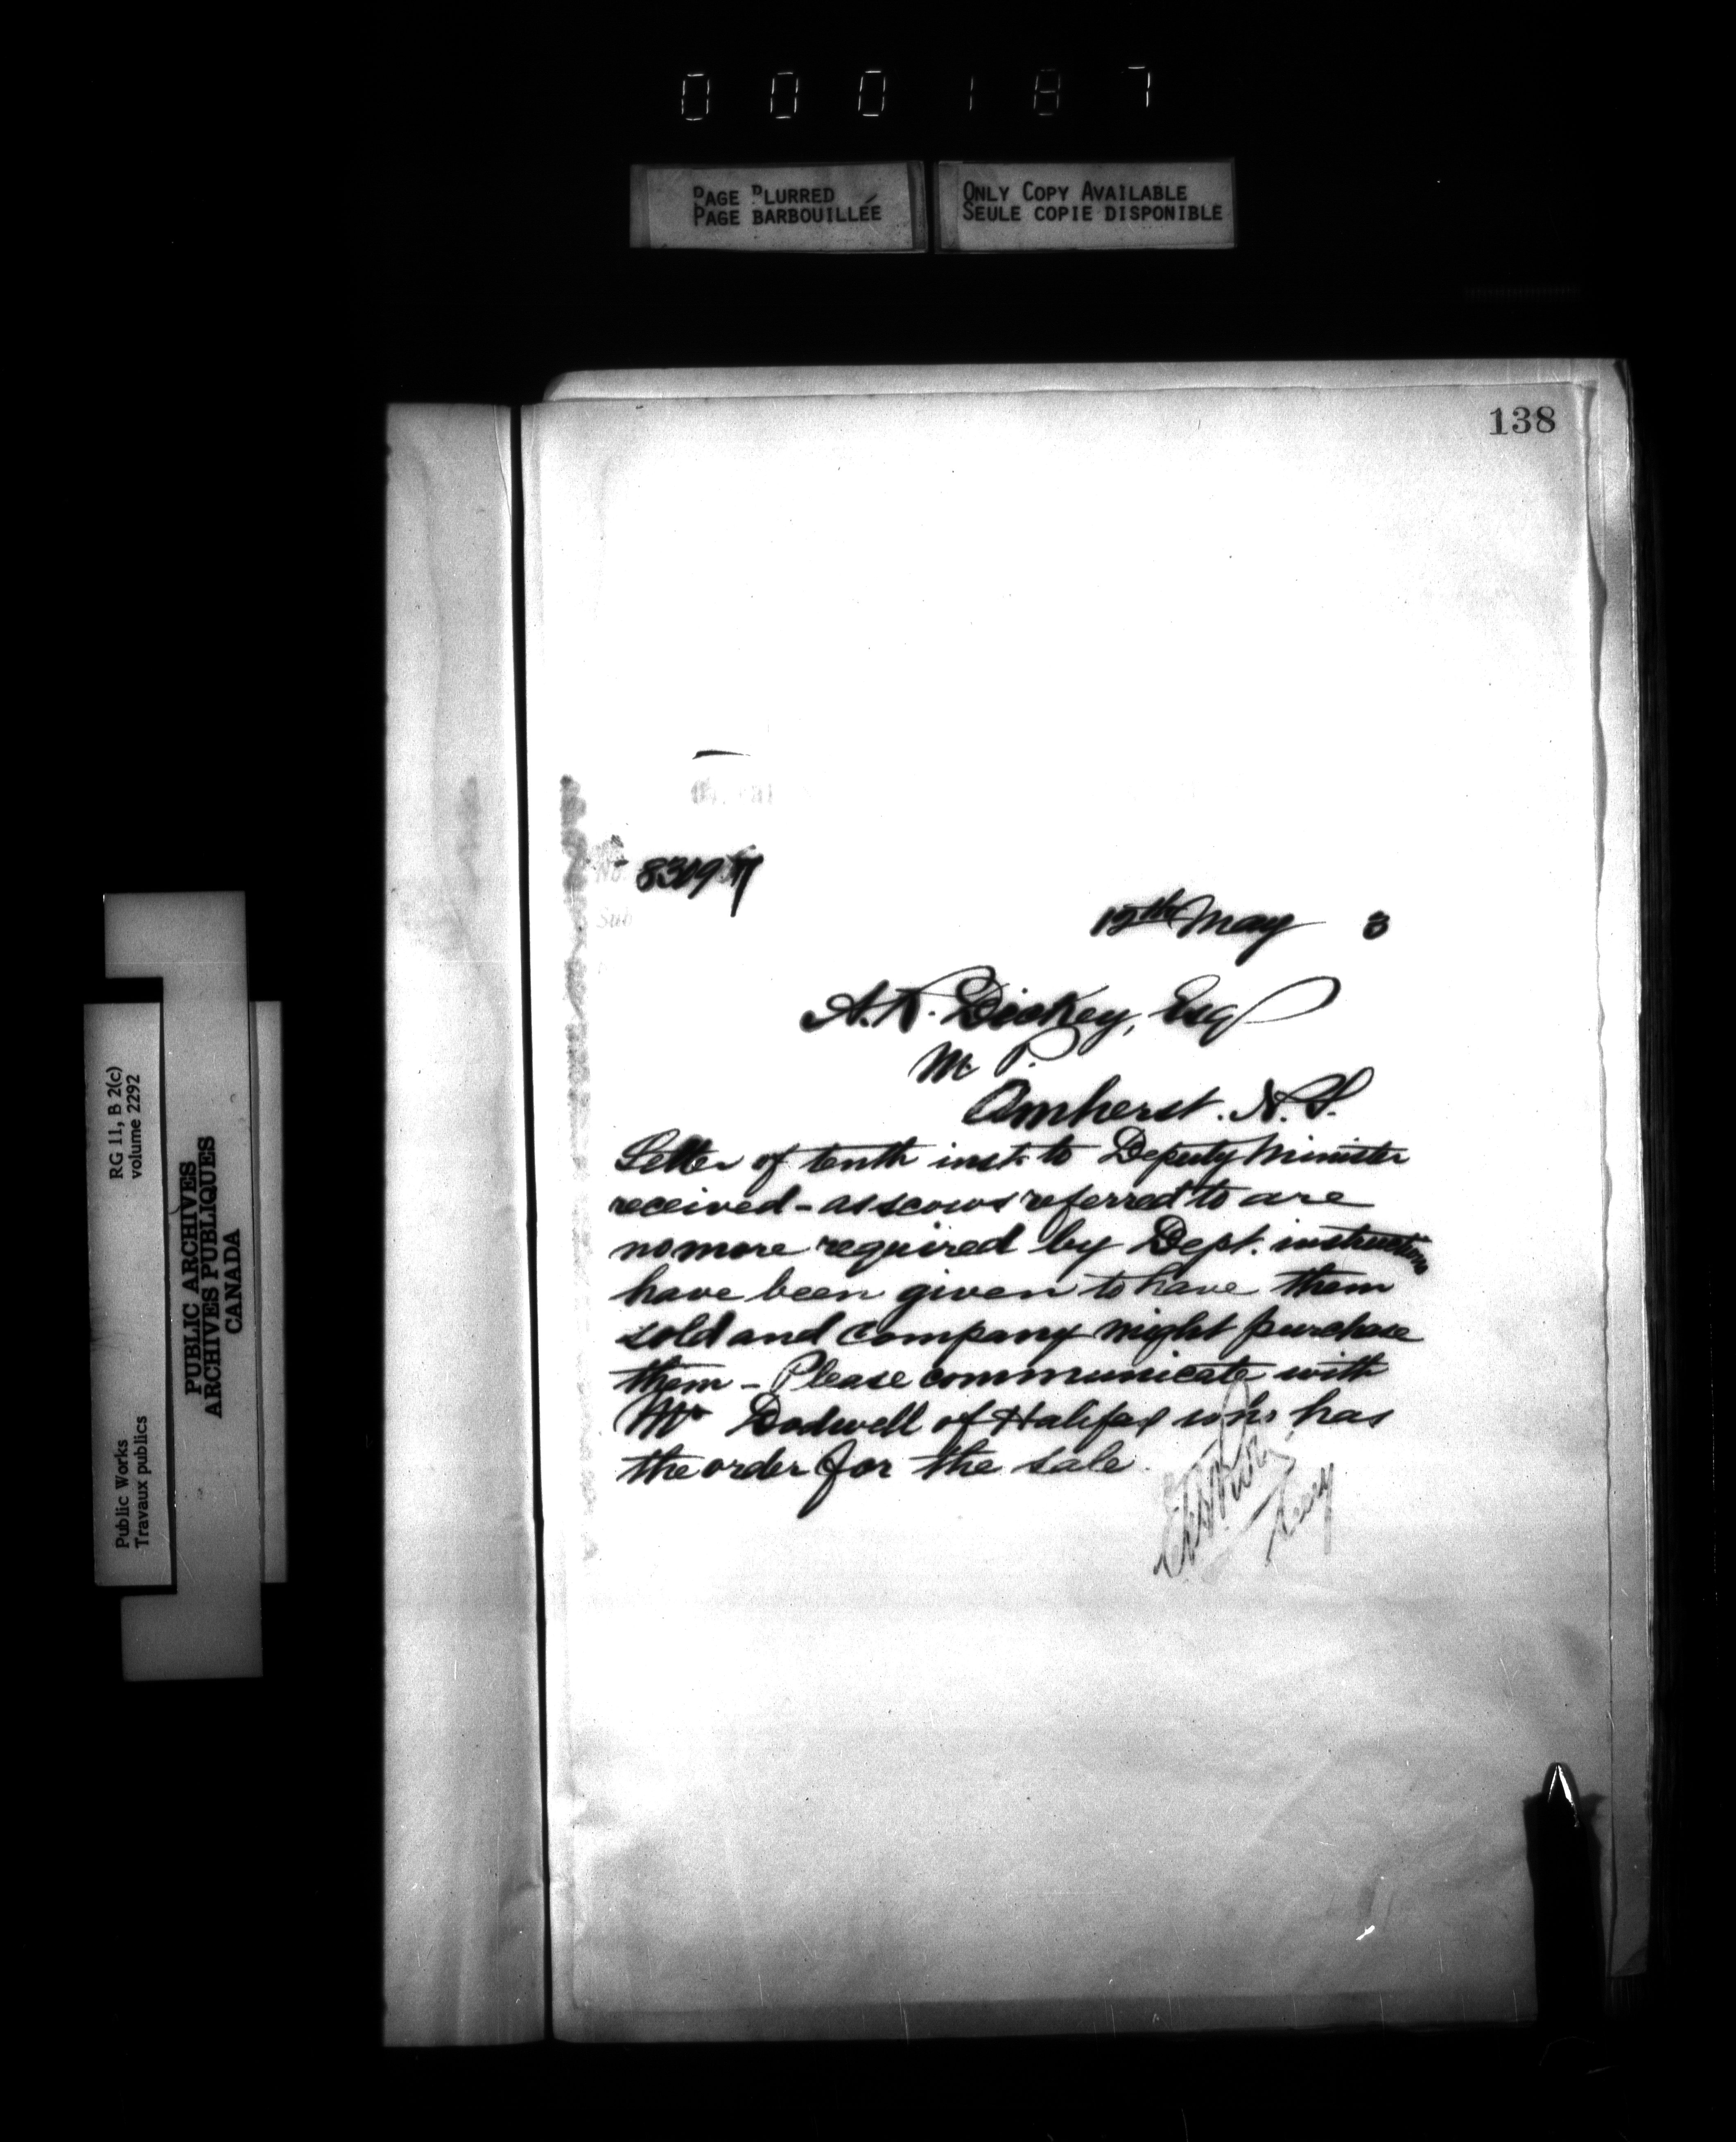 000187
PAGE BLURRED
PAGE BARBOUILLÉE
ONLY COPY AVAILABLE
SEULE COPIE DISPONIBLE
138
No. 8309
Sub
12th May 3
A. R. Dickey, Esq
M P.
Amherst. N. S.
Letter of tenth inst. to Deputy Minister
received - as scows referred to are
no more required by Dept. instructions
have been given to have them
sold and company might purchase
them - Please communicate with
Mr Dodwell of Halifax who has
the order for the sale.
Secy
RG 11, B 2(c)
volume 2292
Public Works
Travaux publics
PUBLIC ARCHIVES
ARCHIVES PUBLIQUES
CANADA